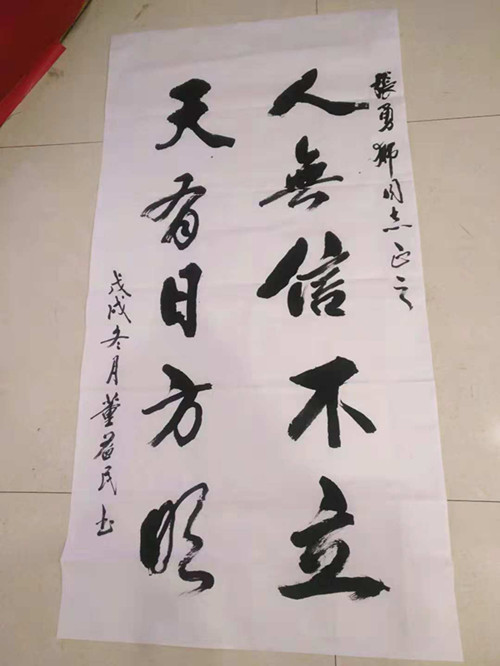 張勇鄉同志正之
人無信不立
天有日方明
戊戌冬月董益民书